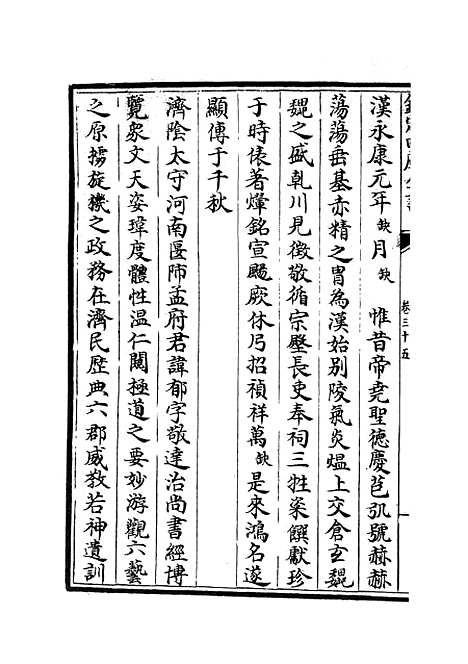 欽定四庫全書
卷三十五
漢永康元年缺月缺　惟昔帝堯聖德慶苞㢲號赫赫
蕩蕩垂基赤精之胄為漢始别陵氣炎熅上交倉玄巍
巍之盛乾川見徴敬循宗壂長吏奉祠三牲粢饌獻珍
于時俵著煒銘宣颺厥休丂招禎祥萬缺是來鴻名遂
顯傳于千秋
濟陰太守河南匽師孟府君諱郁字敬達治尚書經博
覽衆文天姿瑋度體性温仁闓極道之要妙游觀六藝
之原據旋機之政務在濟民歴典六郡威教若神遺訓